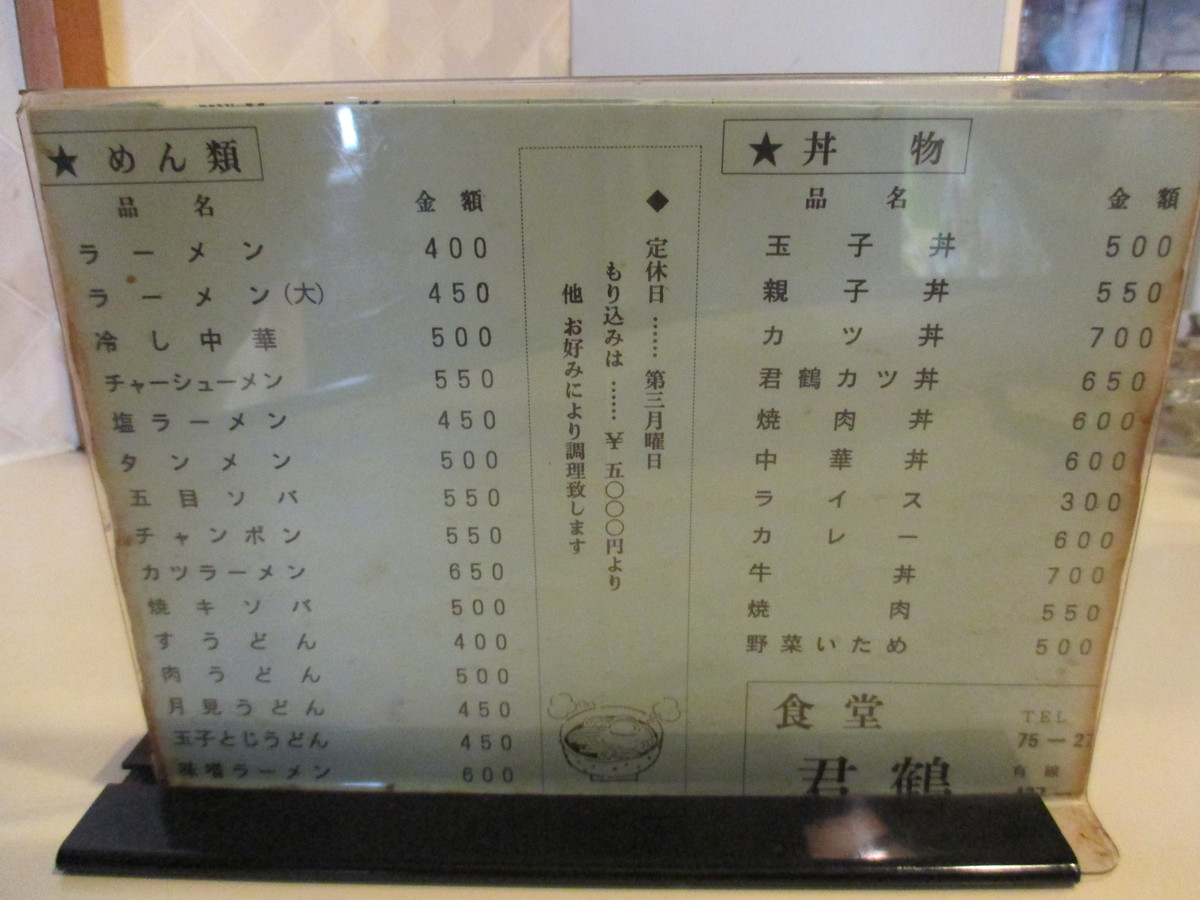 ★ めん類
品名 金額
ラーメン 400
ラーメン(大) 450
冷し中華 500
チャーシューメン 550
塩ラーメン 450
タンメン 500
五目ソバ 550
チャンポン 550
カツラーメン 650
焼キソバ 500
すうどん 400
肉うどん 500
月見うどん 450
玉子とじうどん 450
味噌ラーメン 600
◆ 定休日……第三月曜日
もり込みは……¥五〇〇〇円より
他 お好みにより調理致します
★ 丼物
品名 金額
玉子丼 500
親子丼 550
カツ丼 700
君鶴カツ丼 650
焼肉丼 600
中華丼 600
ライス 300
カレー 600
牛丼 700
焼肉 550
野菜いため 500
食堂
君鶴
TEL
75―27
有線